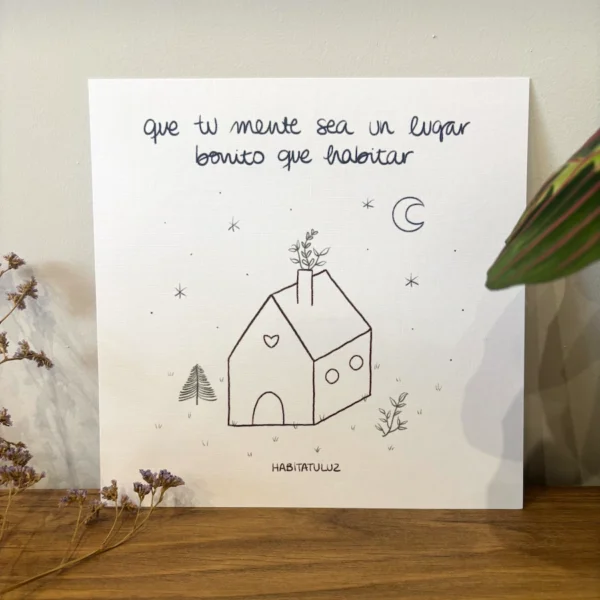 que tu mente sea un lugar
bonito que habitar
HABITATULUZ